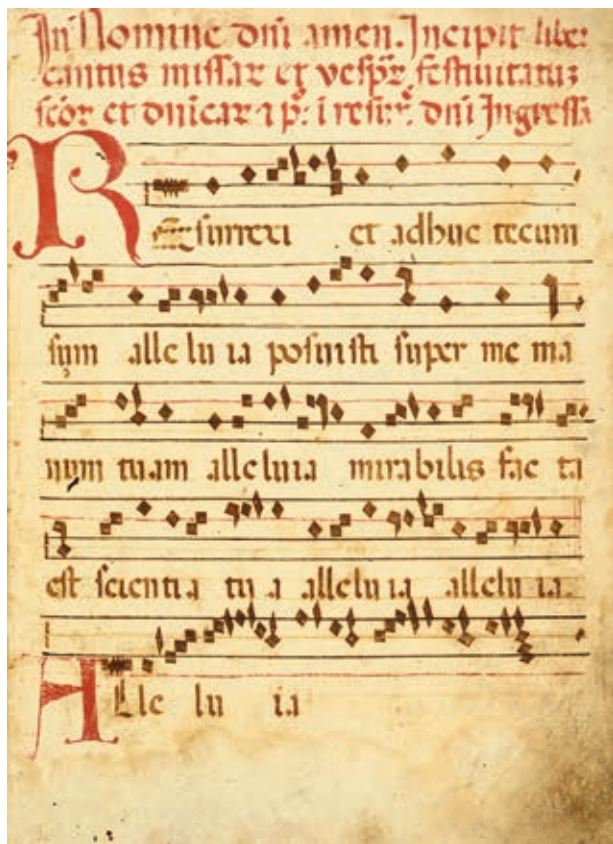 In Nomine dni amen. Incipit liber
cantus missar et vespr festiuitatuz
scor et dnicar i p: i resur: dni Ingressa
Resurrexi et adhuc tecum
sum alle lu ia posuisti super me ma
num tuam alleluia mirabilis fac ta
est scientia tu a allelu ia allelu ia.
Alle lu ia